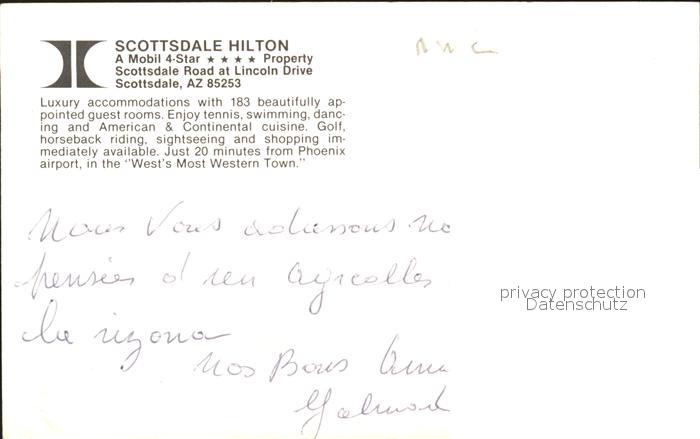 SCOTTSDALE HILTON
A Mobil 4-Star ★ ★ ★ ★ Property
Scottsdale Road at Lincoln Drive
Scottsdale, AZ 85253
Luxury accommodations with 183 beautifully ap-
pointed guest rooms. Enjoy tennis, swimming, danc-
ing and American & Continental cuisine. Golf,
horseback riding, sightseeing and shopping im-
mediately available. Just 20 minutes from Phoenix
airport, in the "West's Most Western Town."
Nous Vous adressons no
pensées d
nos Bons
privacy protection
Datenschutz